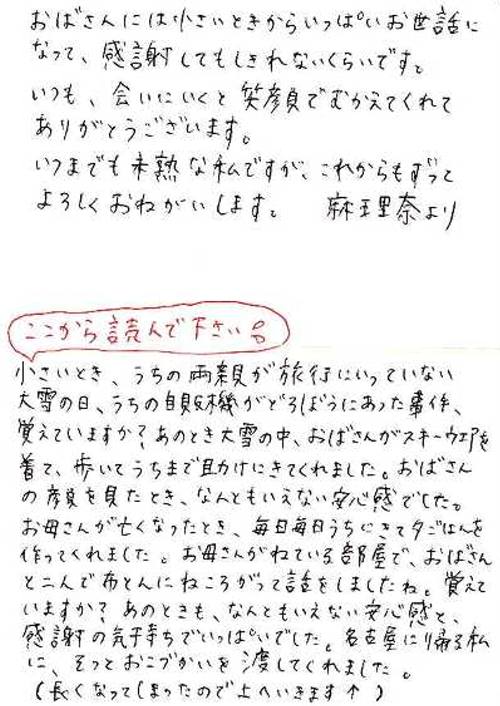 おばさんには小さいときからいっぱいお世話に
なって、感謝してもしきれないくらいです。
いつも、会いにいくと笑顔でむかえてくれて
ありがとうございます。
いつまでも未熟な私ですが、これからもずっと
よろしくおねがいします。　麻理奈より
ここから読んで下さい
小さいとき、うちの両親が旅行にいっていない
大雪の日、うちの自販機がどろぼうにあった事件、
覚えていますか？あのとき大雪の中、おばさんがスキーウェアを
着て、歩いてうちまで助けにきてくれました。おばさん
の顔を見たとき、なんともいえない安心感でした。
お母さんが亡くなったとき、毎日毎日うちにきて夕ごはんを
作ってくれました。お母さんがねている部屋で、おばさん
と二人で布とんにねころがって話をしましたね。覚えて
いますか？あのときも、なんともいえない安心感と、
感謝の気持ちでいっぱいでした。名古屋に帰る私
に、そっとおこづかいを渡してくれました。
（長くなってしまったので上へいきます↑）